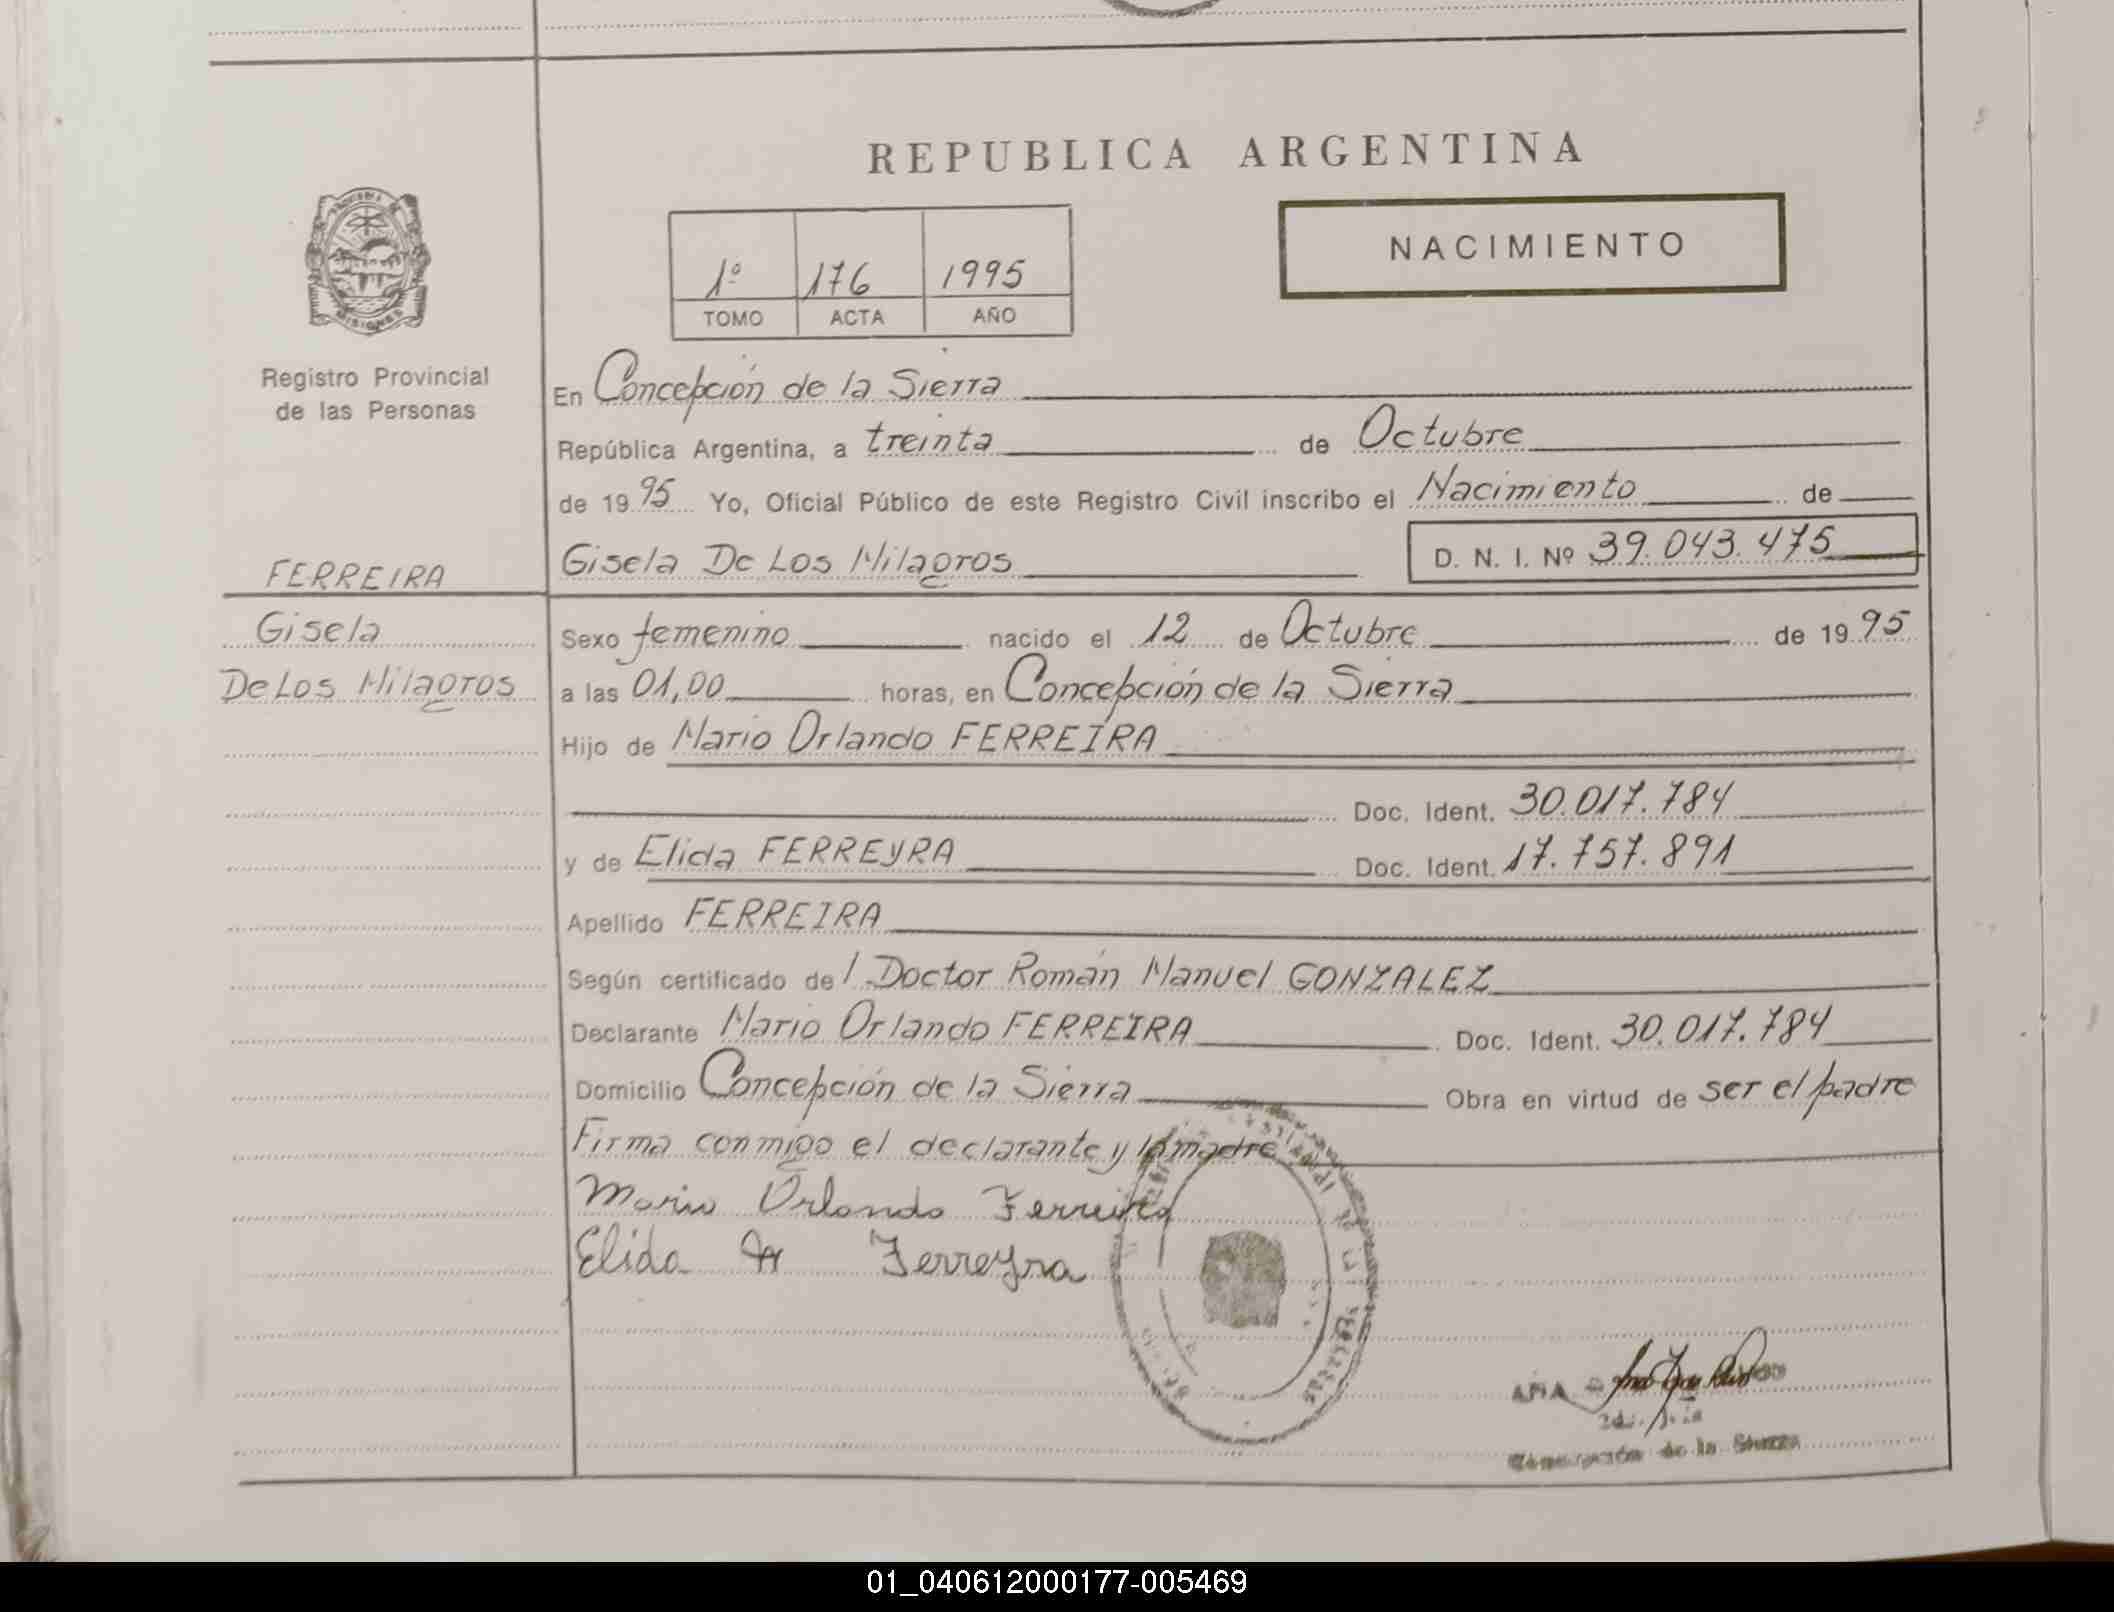 REPUBLICA ARGENTINA
PROVINCIA DE
MISIONES
1º 176 1995
TOMO ACTA AÑO
NACIMIENTO
Registro Provincial
de las Personas
En Concepción de la Sierra
República Argentina, a treinta de Octubre
de 1995 Yo, Oficial Público de este Registro Civil inscribo el Nacimiento de
FERREIRA
Gisela De Los Milagros D. N. I. Nº 39.043.475
Gisela
De Los Milagros
Sexo femenino nacido el 12 de Octubre de 1995
a las 01,00 horas, en Concepción de la Sierra
Hijo de Mario Orlando FERREIRA
Doc. Ident. 30.017.784
y de Elida FERREYRA Doc. Ident. 17.757.891
Apellido FERREIRA
Según certificado del Doctor Román Manuel GONZALEZ
Declarante Mario Orlando FERREIRA Doc. Ident. 30.017.784
Domicilio Concepción de la Sierra Obra en virtud de ser el padre
Firma conmigo el declarante y la madre
Mario Orlando Ferreira
Elida Ferreyra
Concepción de la Sierra
01_040612000177-005469